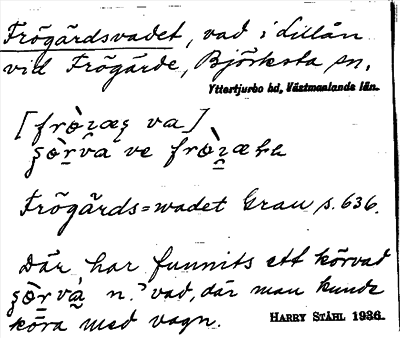 Frögärdsvadet, vad i Lillån
vid Frögärde, Björksta sn,
Yttertjurbo hd, Västmanlands län.
[frö̀ɿæʂ va]
ʂö̀r̠va ve frö̀ɿ̠æ
Frögärds=wadet Grau s. 636.
Där har funnits ett körvad
ʂö̀r̠và n. "vad, där man kunde
köra med vagn.
HARRY STÅHL 1936.